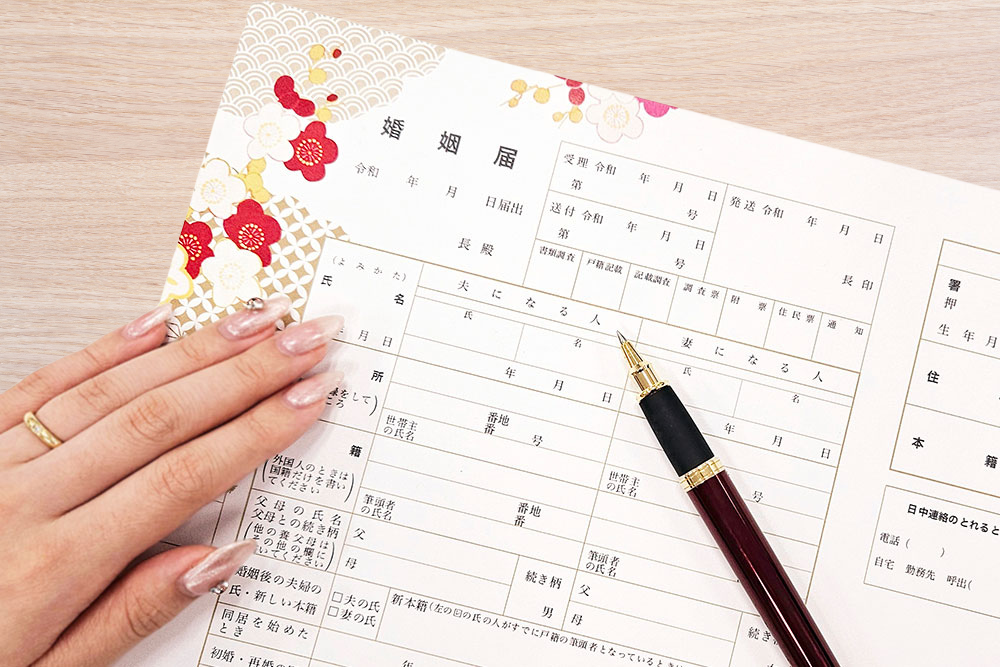 婚姻届
令和 年 月 日届出
長 殿
受理 令和 年 月 日
第 号
送付 令和 年 月 日
第 号
発送 令和 年 月 日
長 印
書類調査 戸籍記載 記載調査 調査票 附票 住民票 通知
(よみかた)
氏 名
夫になる人
氏 名
妻になる人
氏 名
月 日
年 月 日
年 月 日
所
をして
ころ
番地
番 号
世帯主
の氏名
号
世帯主
の氏名
籍
外国人のときは
国籍だけを書い
てください
番地
番
筆頭者
の氏名
筆頭者
の氏名
父母の氏名
父母との続き柄
他の養父母は
その他の欄に
いてください
父
母
続き柄
男
父
母
続き
婚姻後の夫婦の
氏・新しい本籍
□夫の氏
□妻の氏
新本籍(左の☑の氏の人がすでに戸籍の筆頭者となっているときは
同居を始めた
とき
年
初婚・再婚の
署
押
生 年 月
住
本 籍
日中連絡のとれると
電話( )
自宅 勤務先 呼出(